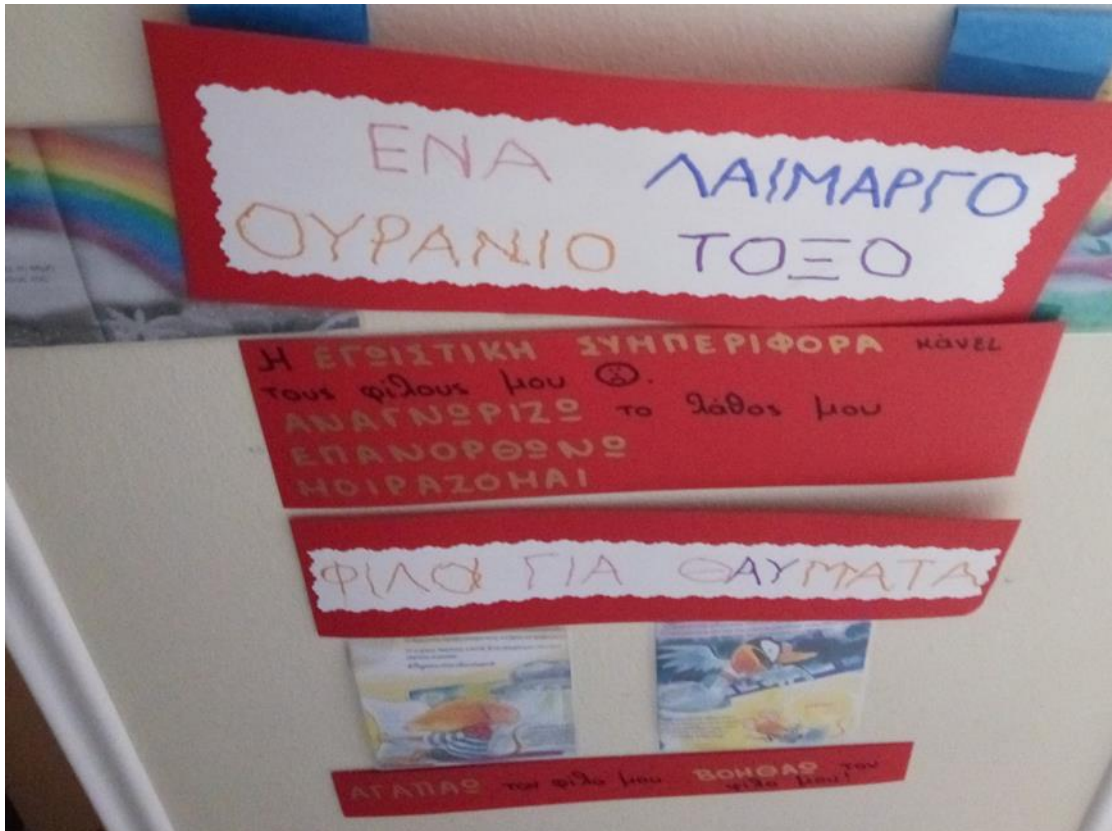 ΕΝΑ ΛΑΙΜΑΡΓΟ
ΟΥΡΑΝΙΟ ΤΟΞΟ
Η ΕΓΩΙΣΤΙΚΗ ΣΥΜΠΕΡΙΦΟΡΑ κάνει
τους φίλους μου ☹.
ΑΝΑΓΝΩΡΙΖΩ το λάθος μου
ΕΠΑΝΟΡΘΩΝΩ
ΜΟΙΡΑΖΟΜΑΙ
ΦΙΛΟΙ ΓΙΑ ΘΑΥΜΑΤΑ
ΑΓΑΠΑΩ τον φίλο μου ΒΟΗΘΑΩ τον
φίλο μου!